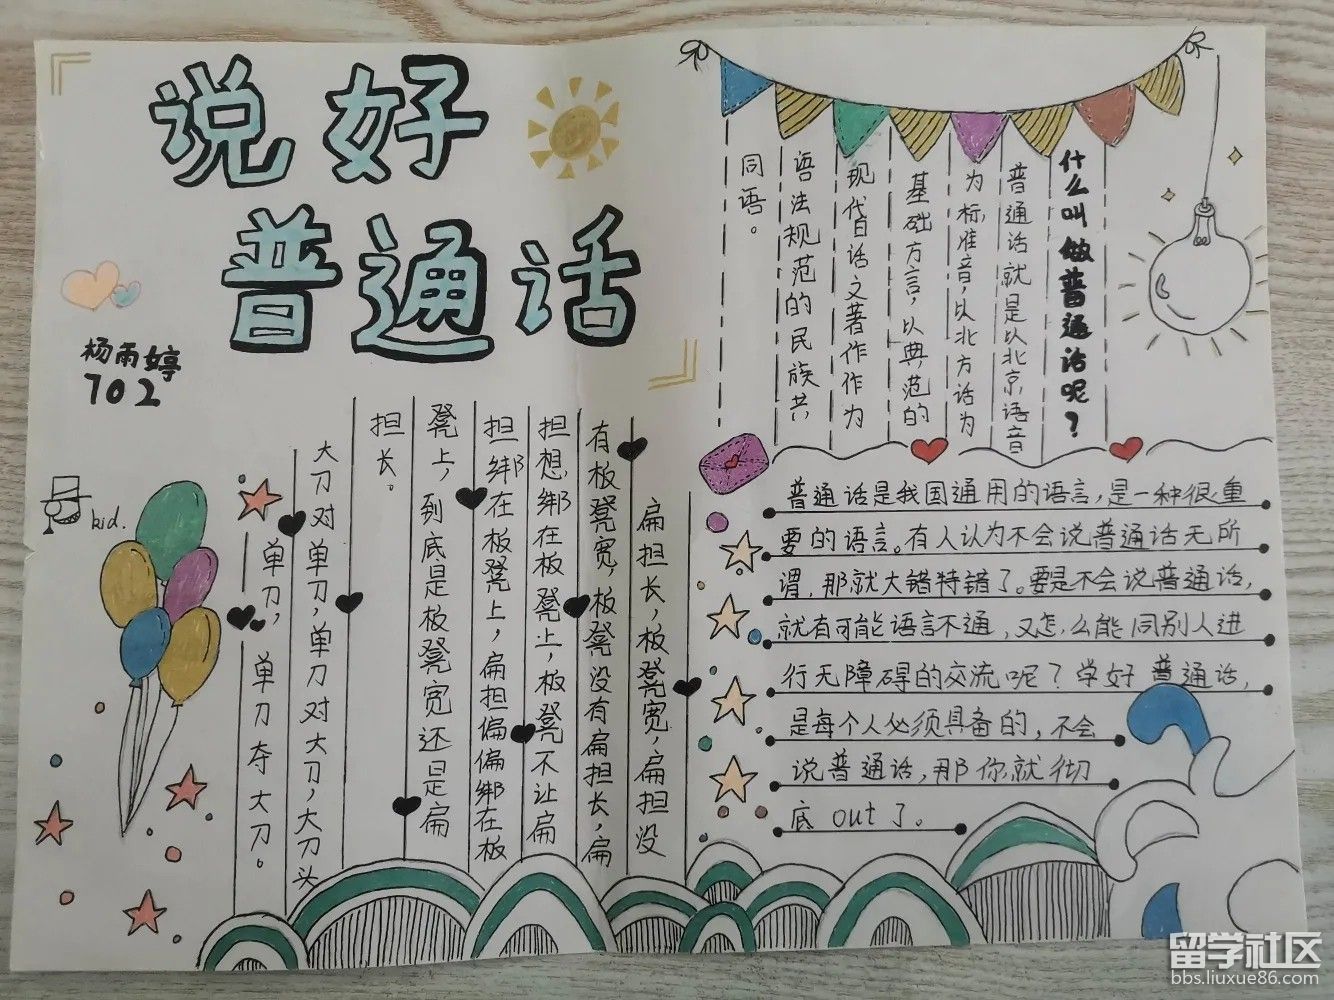 说好
普通话
杨雨婷
702
kid.
什么叫做普通话呢？
普通话就是以北京语音
为标准音，以北方话为
基础方言，以典范的
现代白话文著作作为
语法规范的民族共
同语。
扁担长，板凳宽，扁担没
有板凳宽，板凳没有扁担长，扁
担想绑在板凳上，板凳不让扁
担绑在板凳上，扁担偏偏绑在板
凳上，到底是板凳宽还是扁
担长。
大刀对单刀，单刀对大刀，大刀头
单刀，单刀夺大刀。
普通话是我国通用的语言，是一种很重
要的语言。有人认为不会说普通话无所
谓，那就大错特错了。要是不会说普通话，
就有可能语言不通，又怎么能同别人进
行无障碍的交流呢？学好普通话，
是每个人必须具备的，不会
说普通话，那你就彻
底out了。
留学社区
bbs.liuxue86.com